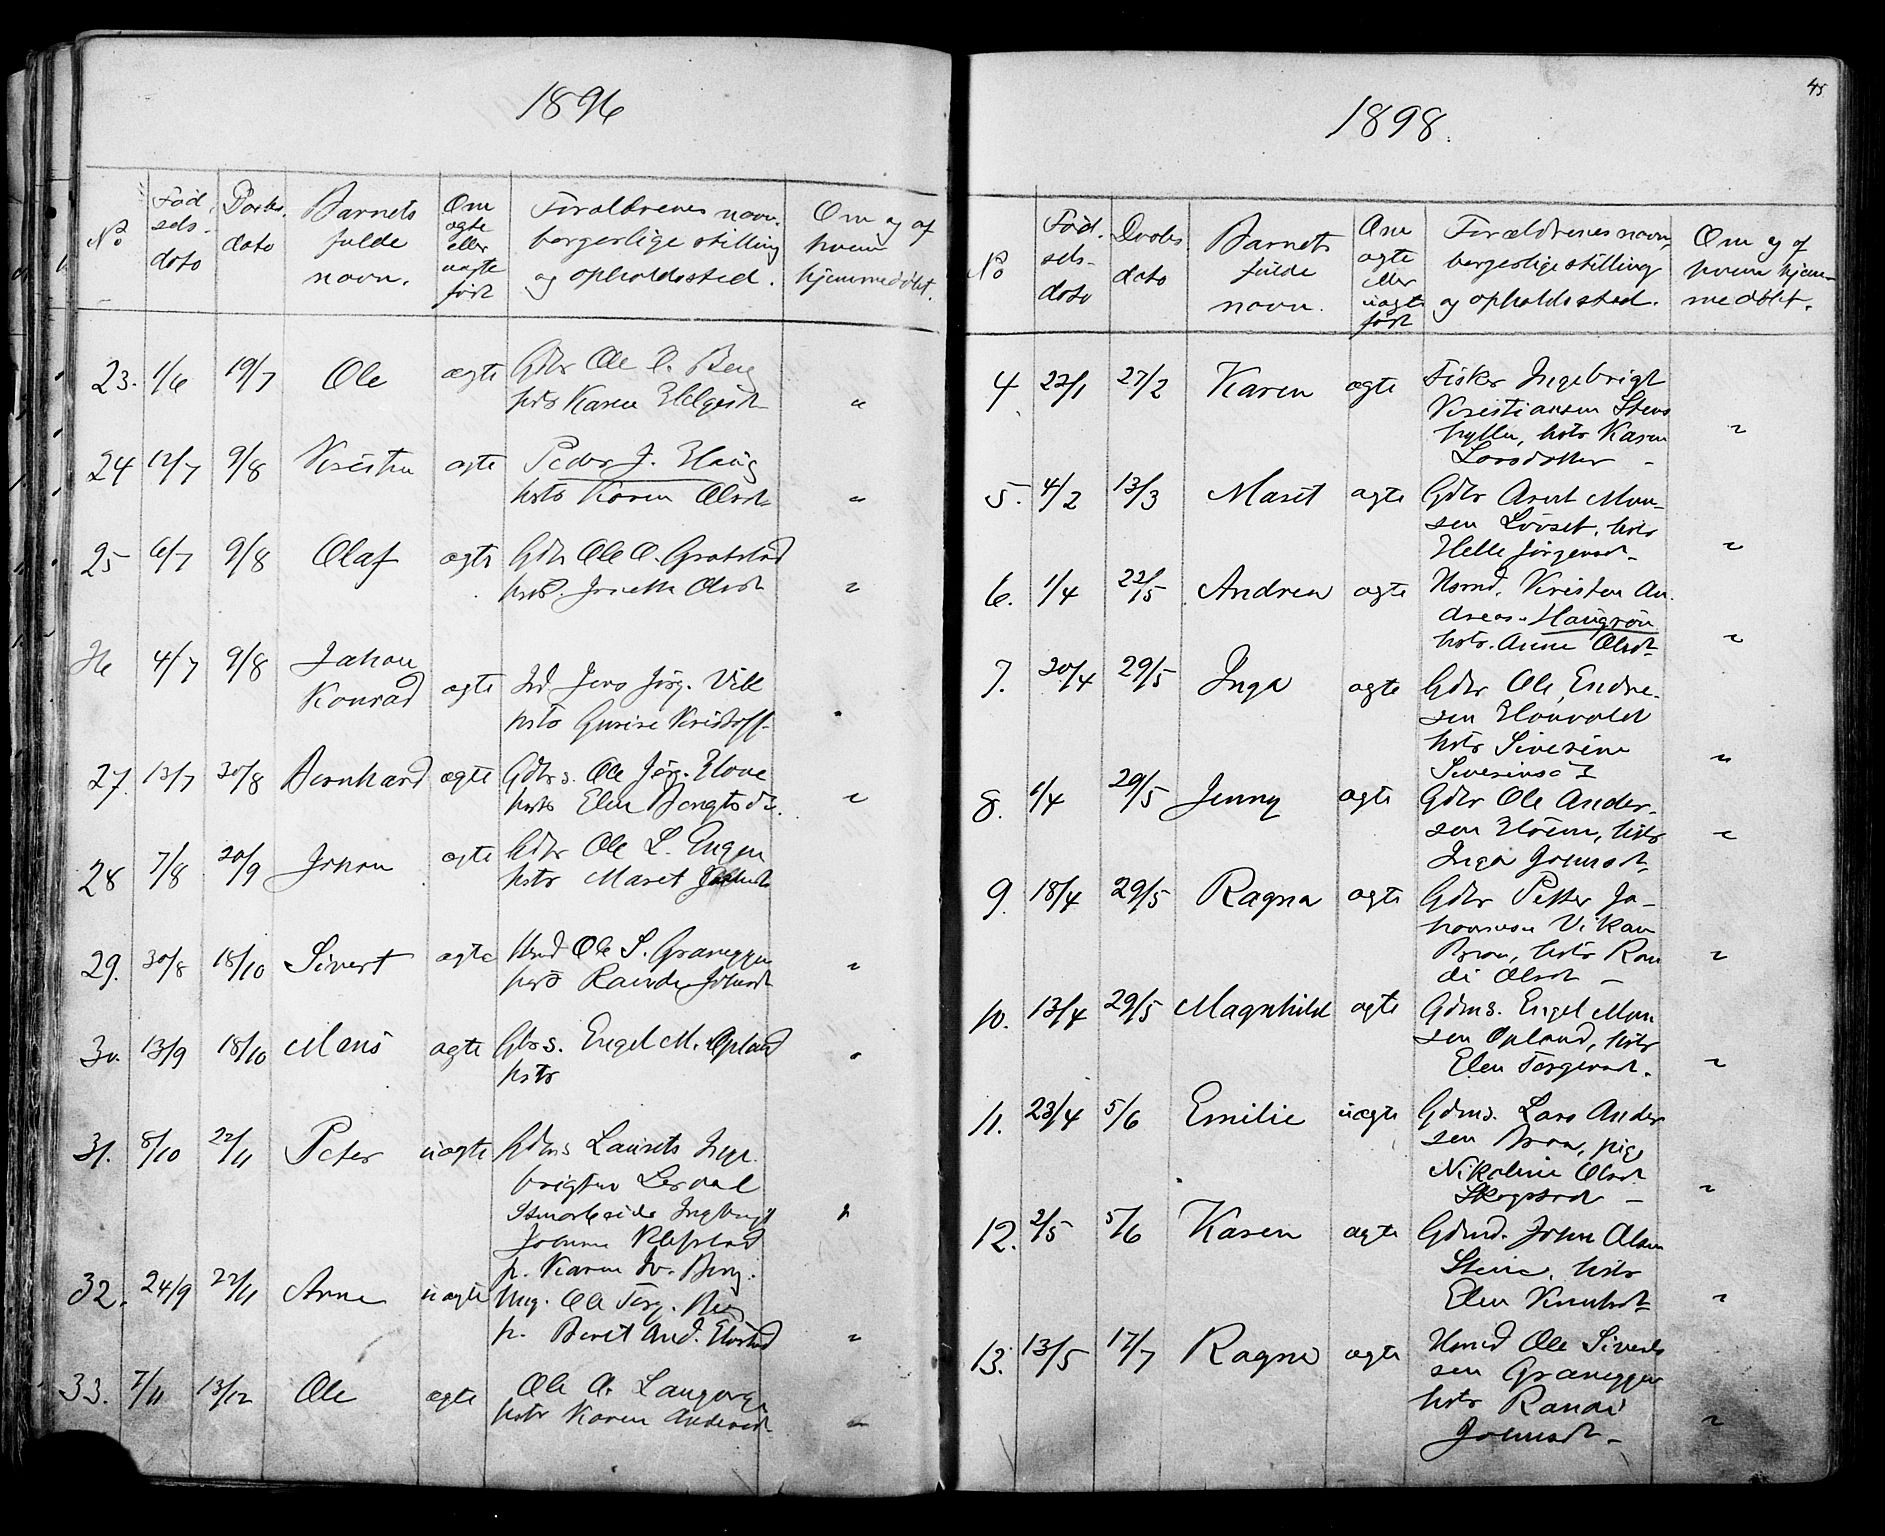 1896
No
Fød
seds-
dato
Daabs
dato
Barnets
fulde
navn.
Om
ægte
eller
uægte
født
Forældrenes navn
borgerlige stilling
og opholdssted.
Om og af
hvem
hjemmedøbt.
23. 1/6 19/7 Ole ægte Gdbr Ole O. Berg
hstr Karen "
24 12/7 9/8 ægte Peder J. Haug
hstr Karen Olsdt "
25 6/7 9/8 Olaf ægte Gdbr Ole O.
Olsdt "
26 4/7 9/8 Johan
Konrad ægte Jens Jørg.
hstr
27. 13/7 30/8 Bernhard ægte Gdbrs. Ole Jørg.
hstr Elen Bengtsd. "
28 7/8 20/9 Johan ægte Gdbr Ole L. Engen
hstr Maret
29. 30/8 18/10 Sivert ægte Ole S. Graneggen
hstr Johnsdt "
30. 13/9 18/10 Mons ægte Gbrs. Engel M. Opland
hstr
31. 8/10 22/11 Peter uægte Gdms Laurits Inge
brigtsen Lerdal
Ingebrigt
p. Karen Berg.
32. 24/9 22/11 Arne uægte Ung. Ole Berg
p. Beret And. "
33. 7/11 13/12 Ole ægte Ole A.
hstr Karen Andersdt "
45
1898.
No
Fød.
seds-
dato
Daabs
dato
Barnets
fulde
navn.
Om
ægte
eller
uægte
født
Forældrenes navn,
borgerlige stilling
og opholdssted.
Om og af
hvem hjem-
medøbt.
4 22/1 27/2 Karen ægte Fisker Ingebrigt
Kristiansen Stens
hyllen, hstr Karen
Larsdatter - "
5. 4/2 13/3 Maret ægte Gdbr Arnt Mon-
sen Løvset, hstr
Helle Jørgensdt - "
6. 1/4 22/5 Andrea ægte Husmd. Kristen An
dreas. Haugrøn
hstr. Anne Olsdt "
7. 20/4 29/5 Inga ægte Gdbr Ole Endre-
sen
hstr Siverine
Siverinsdt "
8. 1/4 29/5 Jenny ægte Gdbr Ole Ander-
sen Høien, hstr
Inga Johnsdt - "
9. 18/4 29/5 Ragna ægte Gdbr Petter Jo-
hansen Vikan
hstr Ran
di Olsdt - "
10. 13/4 29/5 Magnhild ægte Gdms. Engel Mon
sen Opland, hstr
Elen Torgersdt. "
11. 23/4 5/6 Emilie uægte Gdms. Lars Ander
sen pige
Nikoline Olsdt
Skogstad - "
12. 2/5 5/6 Karen ægte Gdmd. John Olsen
Stene, hstr
Elen Knutsdt "
13. 13/5 17/7 Ragna ægte Husmd Ole Siverts
sen Graneggen
hstr Randi
Johnsdt - "